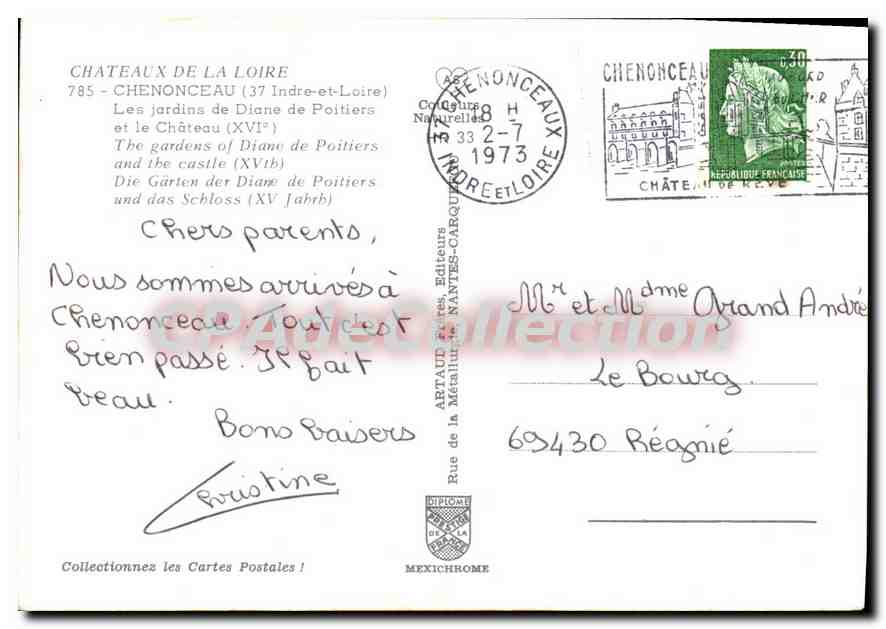 CHATEAUX DE LA LOIRE
785 - CHENONCEAU (37 Indre-et-Loire)
Les jardins de Diane de Poitiers
et le Château (XVIe)
The gardens of Diane de Poitiers
and the castle (XVth)
Die Gärten der Diane de Poitiers
und das Schloss (XV Jahrh)
Couleurs
Naturelles
37 CHENONCEAUX
18 H
33 2-7
1973
INDRE ET LOIRE
CHENONCEAU
CHÂTEAU DE RÊVE
0,30
POSTES
REPUBLIQUE FRANÇAISE
Chers parents,
Nous sommes arrivés à
Chenonceau. Tout c'est
bien passé. Il fait
beau.
Bons baisers
Christine
ARTAUD Frères, Editeurs
Rue de la Métallurgie, NANTES-CARQUEFOU
Mr et Mdme Grand André
Le Bourg
69430 Régnié
DIPLOME
PRESTIGE
DE LA
FRANCE
MEXICHROME
Collectionnez les Cartes Postales !
CPAdeCollection